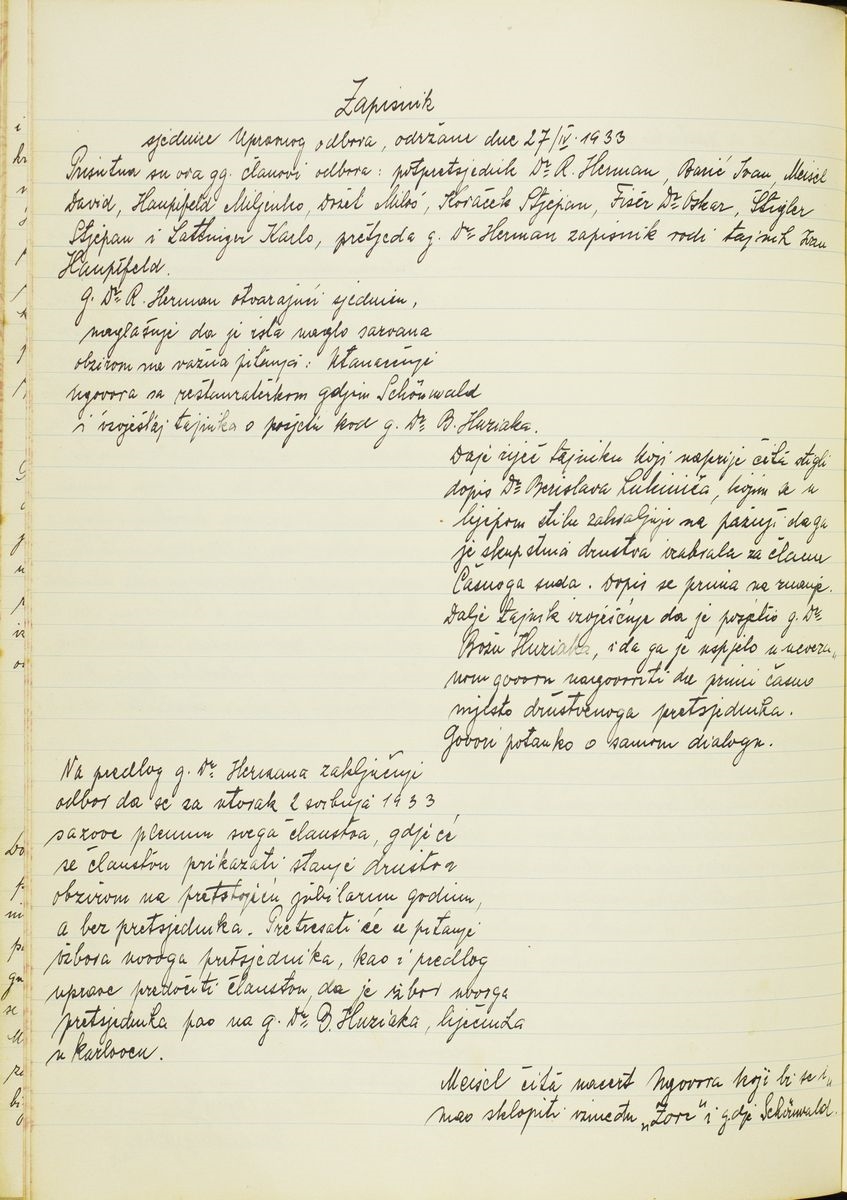 Zapisnik
sjednice Upravnog odbora, održane dne 27/IV. 1933
Prisutna su ova gg. članovi odbora: potpretsjednik Dr. R. Herman, Barić Ivan, Meisel
David, Hauptfeld Miljenko, Došel Miloš, Koraček Stjepan, Fišer Dr. Oskar, Štegler
Stjepan i Lattniger Karlo, pretsjeda g. Dr. Herman zapisnik vodi tajnik Ivan
Hauptfeld.
g. Dr. R. Herman otvarajući sjednicu,
naglašuje da je ista naglo sazvana
obzirom na važna pitanja: Ustanovenje
ugovora sa restauraterkom gdjom Schönwald
i izvještaj tajnika o posjeti kod g. Dr. B. Huziaka.
Daje riječ tajniku koji najprije čita stigli
dopis Dr. Berislava Lukinića, kojim se u
lijepom stilu zahvaljuje na pažnji da ga
je skupština društva izabrala za člana
Časnoga suda. Dopis se prima na znanje.
Dalje tajnik izvješćuje da je posjetio g. Dr.
Božu Huziaka, i da ga je uspjelo u neveza„
nom govoru nagovoriti da primi časno
mjesto društvenoga pretsjednika.
Govori potanko o samom dialogu.
Na predlog g. Dr. Hermana zaključuje
odbor da se za utorak 2 svibnja 1933
sazove plenum svega članstva, gdje će
se članstvu prikazati stanje društva
obzirom na pretstojeću jubilarnu godinu,
a bez pretsjednika. Pretresati će se pitanje
izbora novoga pretsjednika, kao i predlog
uprave predočiti članstvu, da je izbor novoga
pretsjednika pao na g. Dr. B. Huziaka, liječnika
u Karlovcu.
Meisel čita nacrt Ugovora koji bi se i„
mao sklopiti između „Zore" i gdje Schönwald.